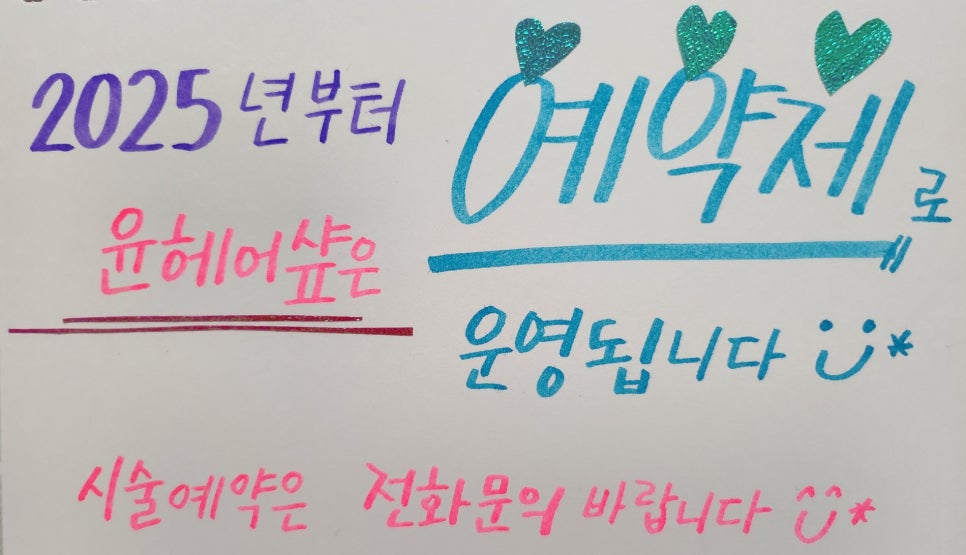 2025년부터
윤헤어샾은
예약제로
운영됩니다
시술예약은 전화문의 바랍니다 ^^*